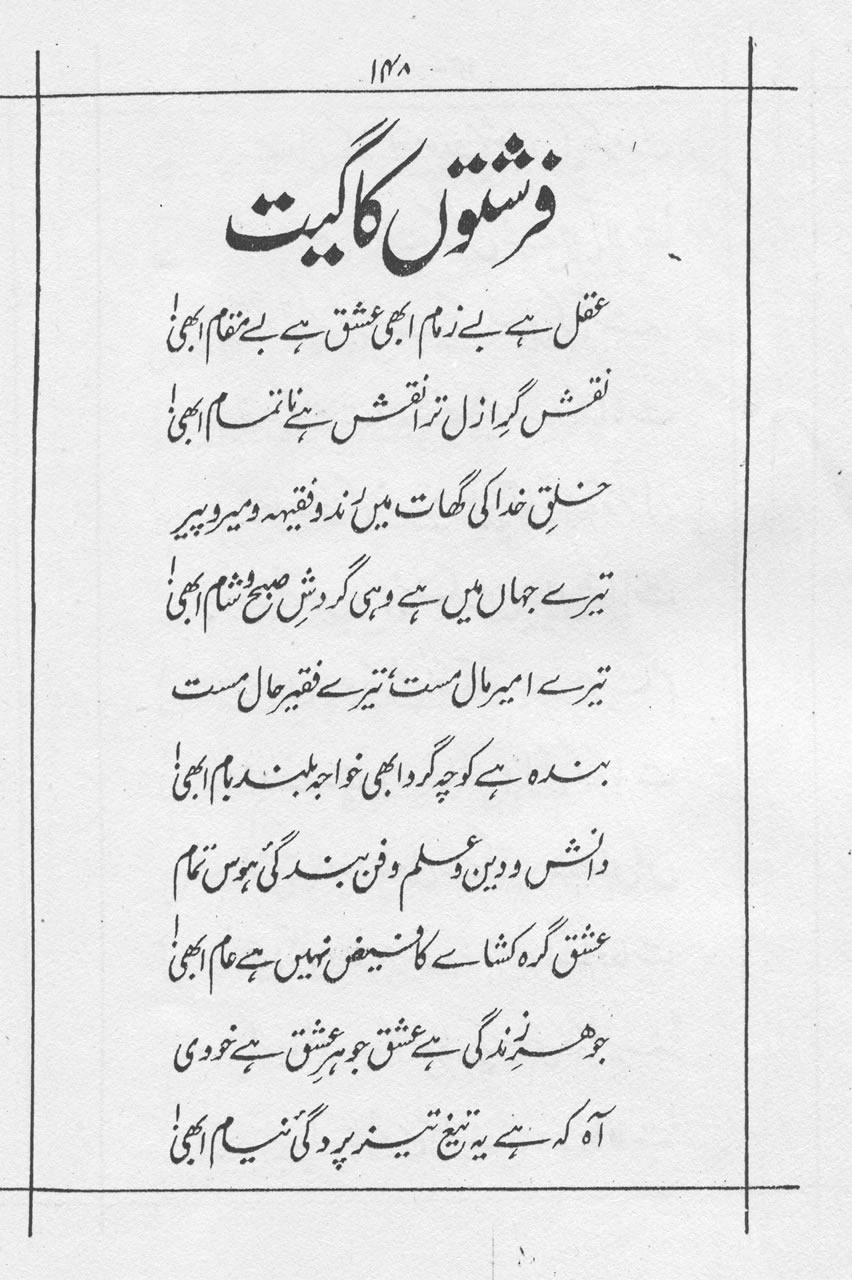 ۱۴۸
فرشتوں کا گیت
عقل ہے بے زمام ابھی عشق ہے بے مقام ابھی!
نقش گرِ ازل ترا نقش ہے ناتمام ابھی!
خلقِ خدا کی گھات میں رند و فقیہہ و میر و پیر
تیرے جہاں میں ہے وہی گردشِ صبح و شام ابھی!
تیرے امیر مال مست، تیرے فقیر حال مست
بندہ ہے کوچہ گرد ابھی خواجہ بلند بام ابھی!
دانش و دین و علم و فن بندگیٔ ہوس تمام
عشق گرہ کشاے کا فیض نہیں ہے عام ابھی!
جوہرِ زندگی ہے عشق جوہرِ عشق ہے خودی
آہ کہ ہے یہ تیغ تیز پردگیٔ نیام ابھی!